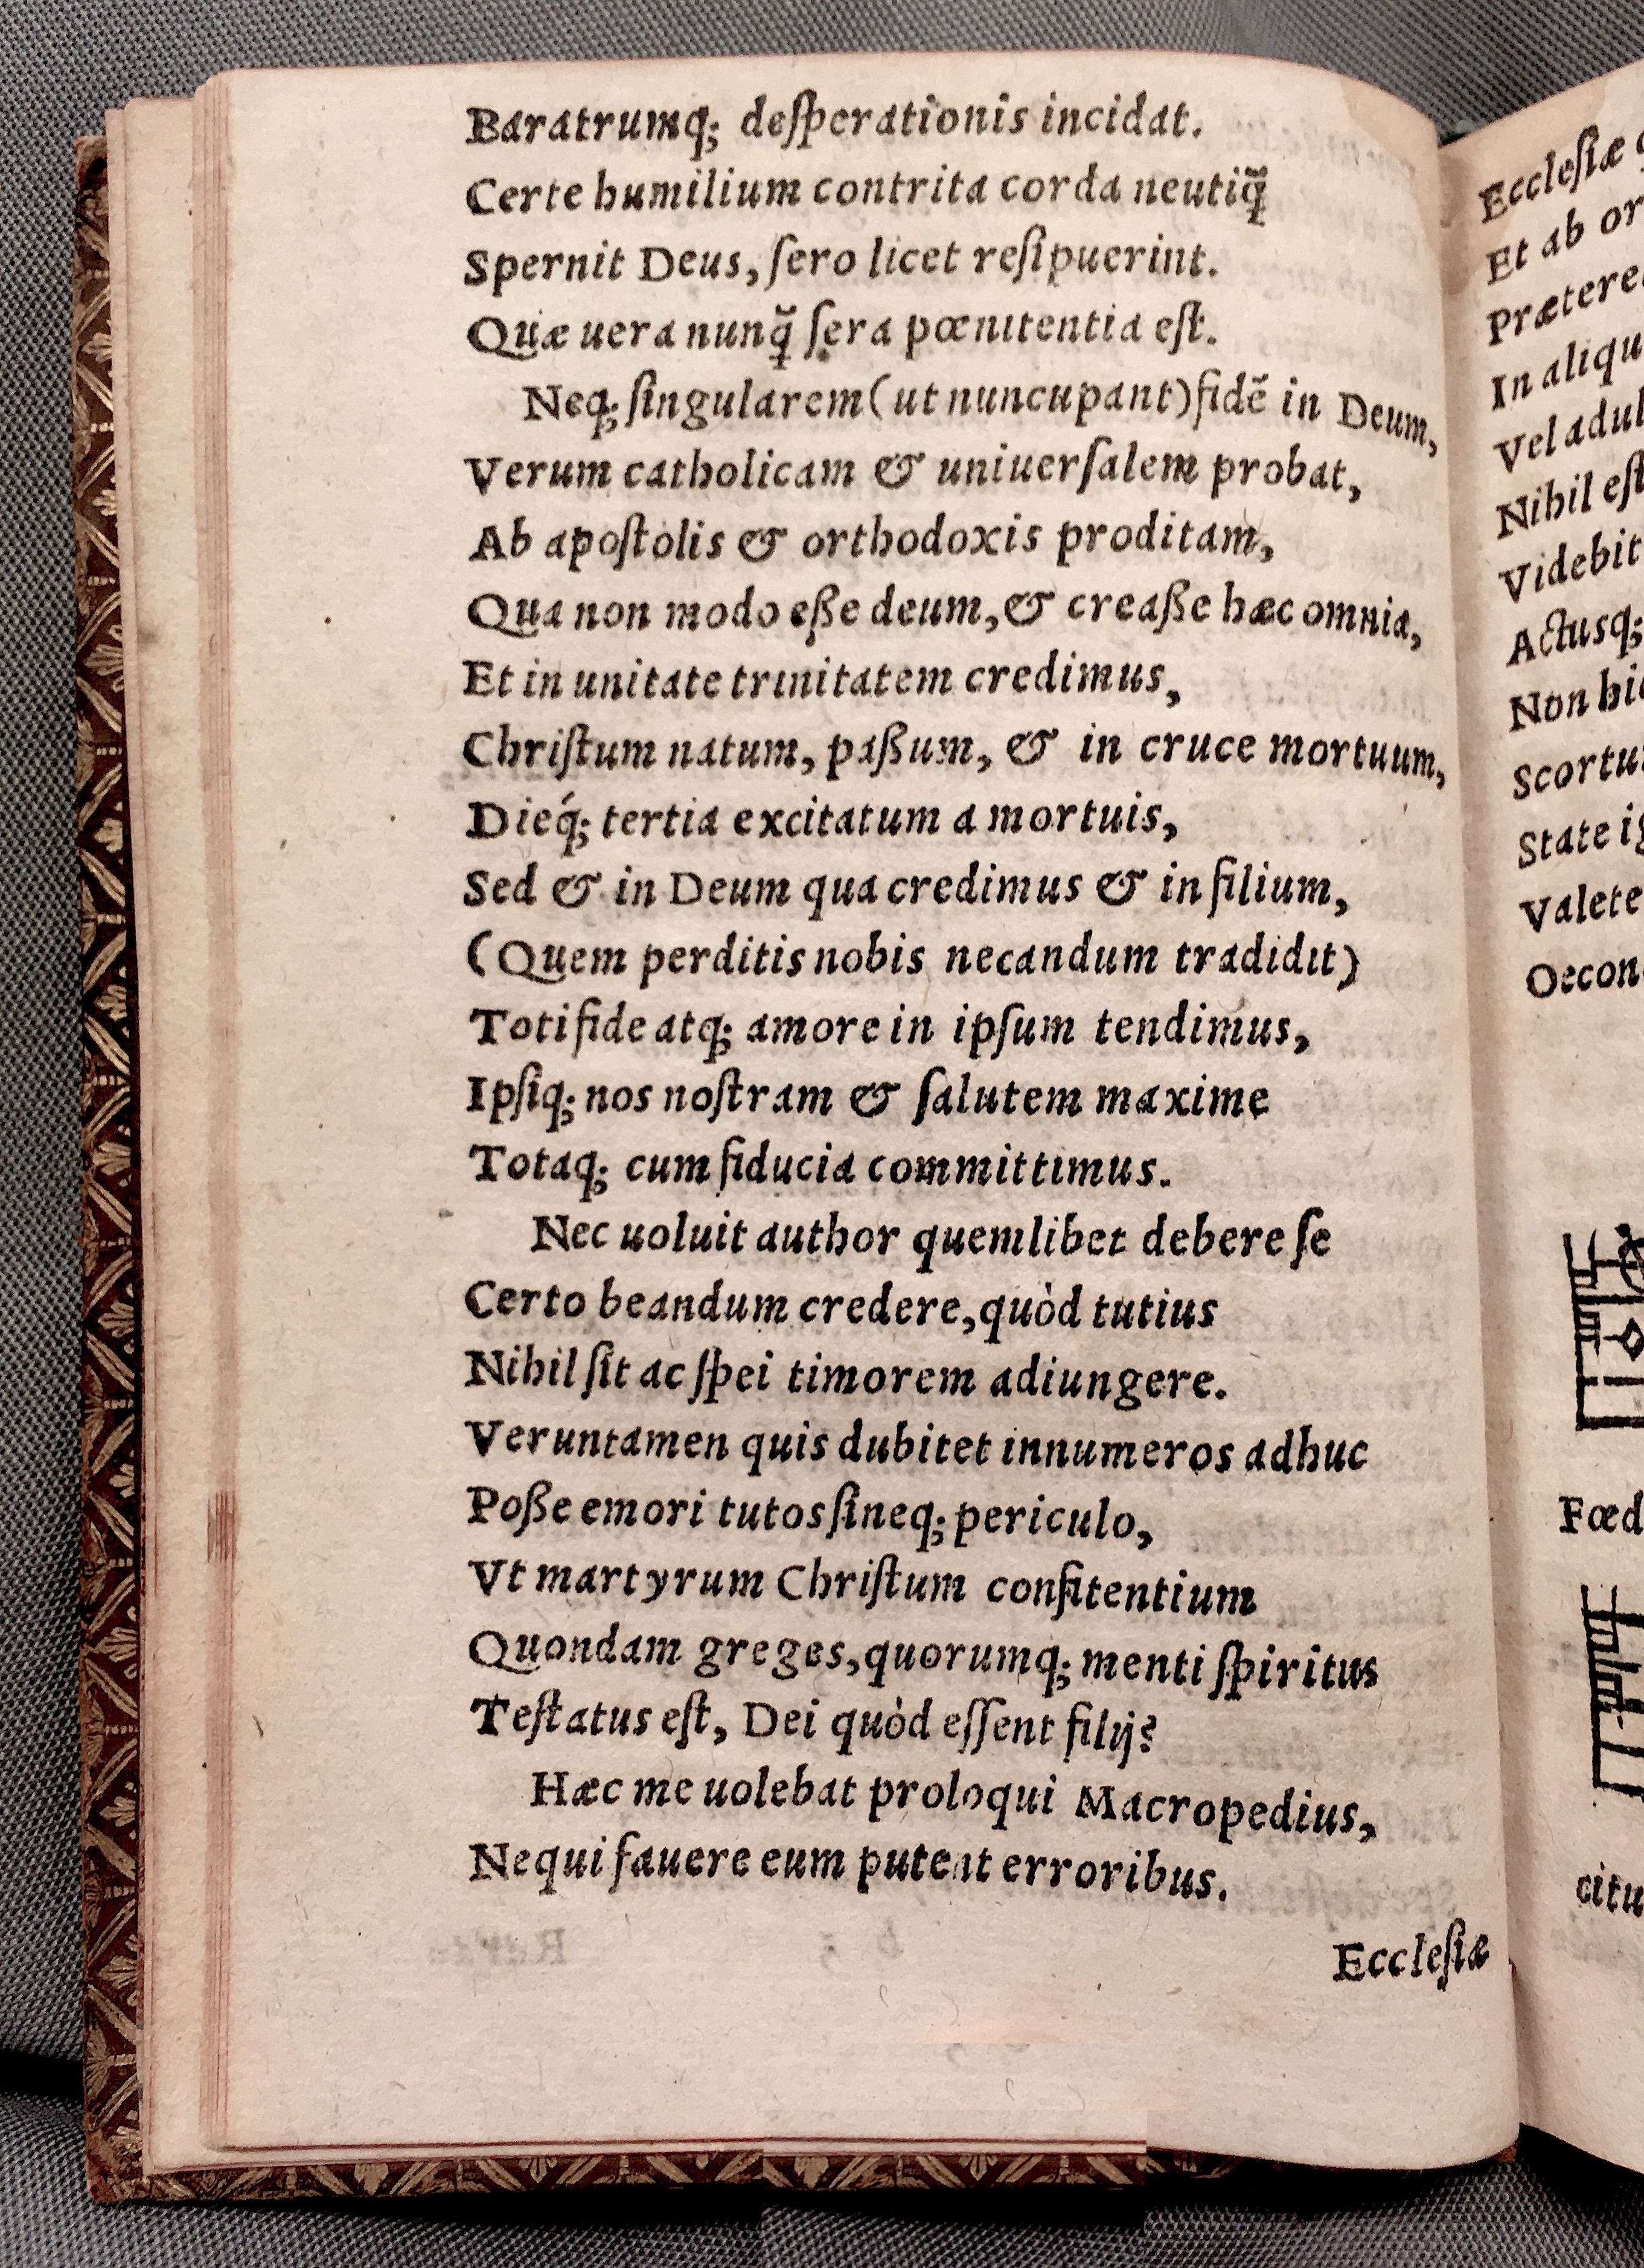 Baratrumq; deſperationis incidat.
Certe humilium contrita corda neutiq̃
Spernit Deus, ſero licet reſipuerint.
Quæ uera nunq̃ ſera pœnitentia eſt.
Neq; ſingularem (ut nuncupant) fidẽ in Deum,
Verum catholicam & uniuerſalem probat,
Ab apoſtolis & orthodoxis proditam,
Qua non modo eße deum, & creaße hæc omnia,
Et in unitate trinitatem credimus,
Chriſtum natum, paßum, & in cruce mortuum,
Dieq́; tertia excitatum a mortuis,
Sed & in Deum qua credimus & in filium,
(Quem perditis nobis necandum tradidit)
Toti fide atq; amore in ipſum tendimus,
Ipſiq; nos noſtram & ſalutem maxime
Totaq; cum fiducia committimus.
Nec uoluit author quemlibet debere ſe
Certo beandum credere, quòd tutius
Nihil ſit ac ſpei timorem adiungere.
Veruntamen quis dubitet innumeros adhuc
Poße emori tutos ſineq; periculo,
Vt martyrum Chriſtum confitentium
Quondam greges, quorumq; menti ſpiritus
Teſtatus eſt, Dei quòd eſſent filij?
Hæc me uolebat proloqui Macropedius,
Ne qui fauere eum putent erroribus.
Eccleſiæ
Eccleſiæ
Et ab
Præterea
In
Vel
Nihil eſt
Videbit
Actusq;
Non
State
Valete